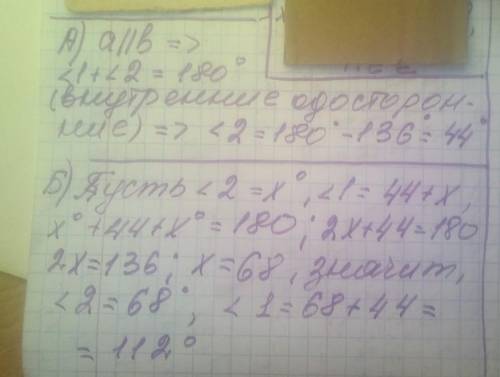 А) a||b =>
<1+<2=180°
(внутренние одосторон-
ние) => <2=180°-136°=44°
Б) Пусть <2=x°, <1=44+x,
x°+44+x°=180; 2x+44=180
2x=136; x=68, значит,
<2=68°, <1=68+44=
=112°